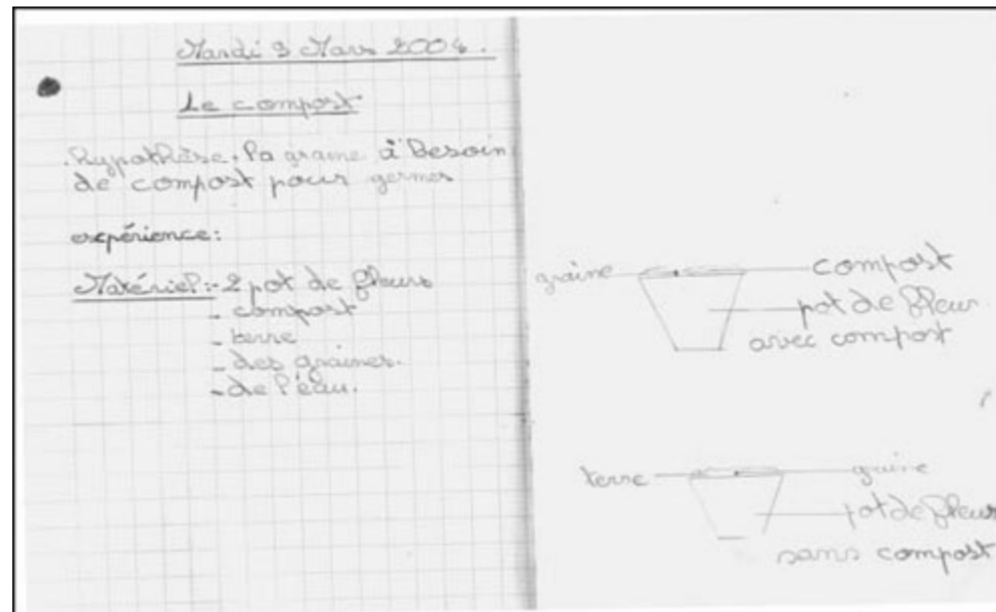 Mardi 9 Mars 2004.
Le compost
.hypothèse. la graine à Besoin
de compost pour germer
expérience:
Matériel:- 2 pot de fleurs
- compost
- terre
- des graines.
- de l'éau.
graine
compost
pot de fleur
avec compost
terre
graine
pot de fleur
sans compost